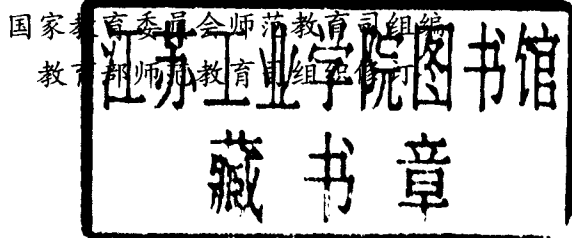 国家教育委员会师范教育司组编
教育部师范教育司组织修订
江苏工业学院图书馆
藏书章